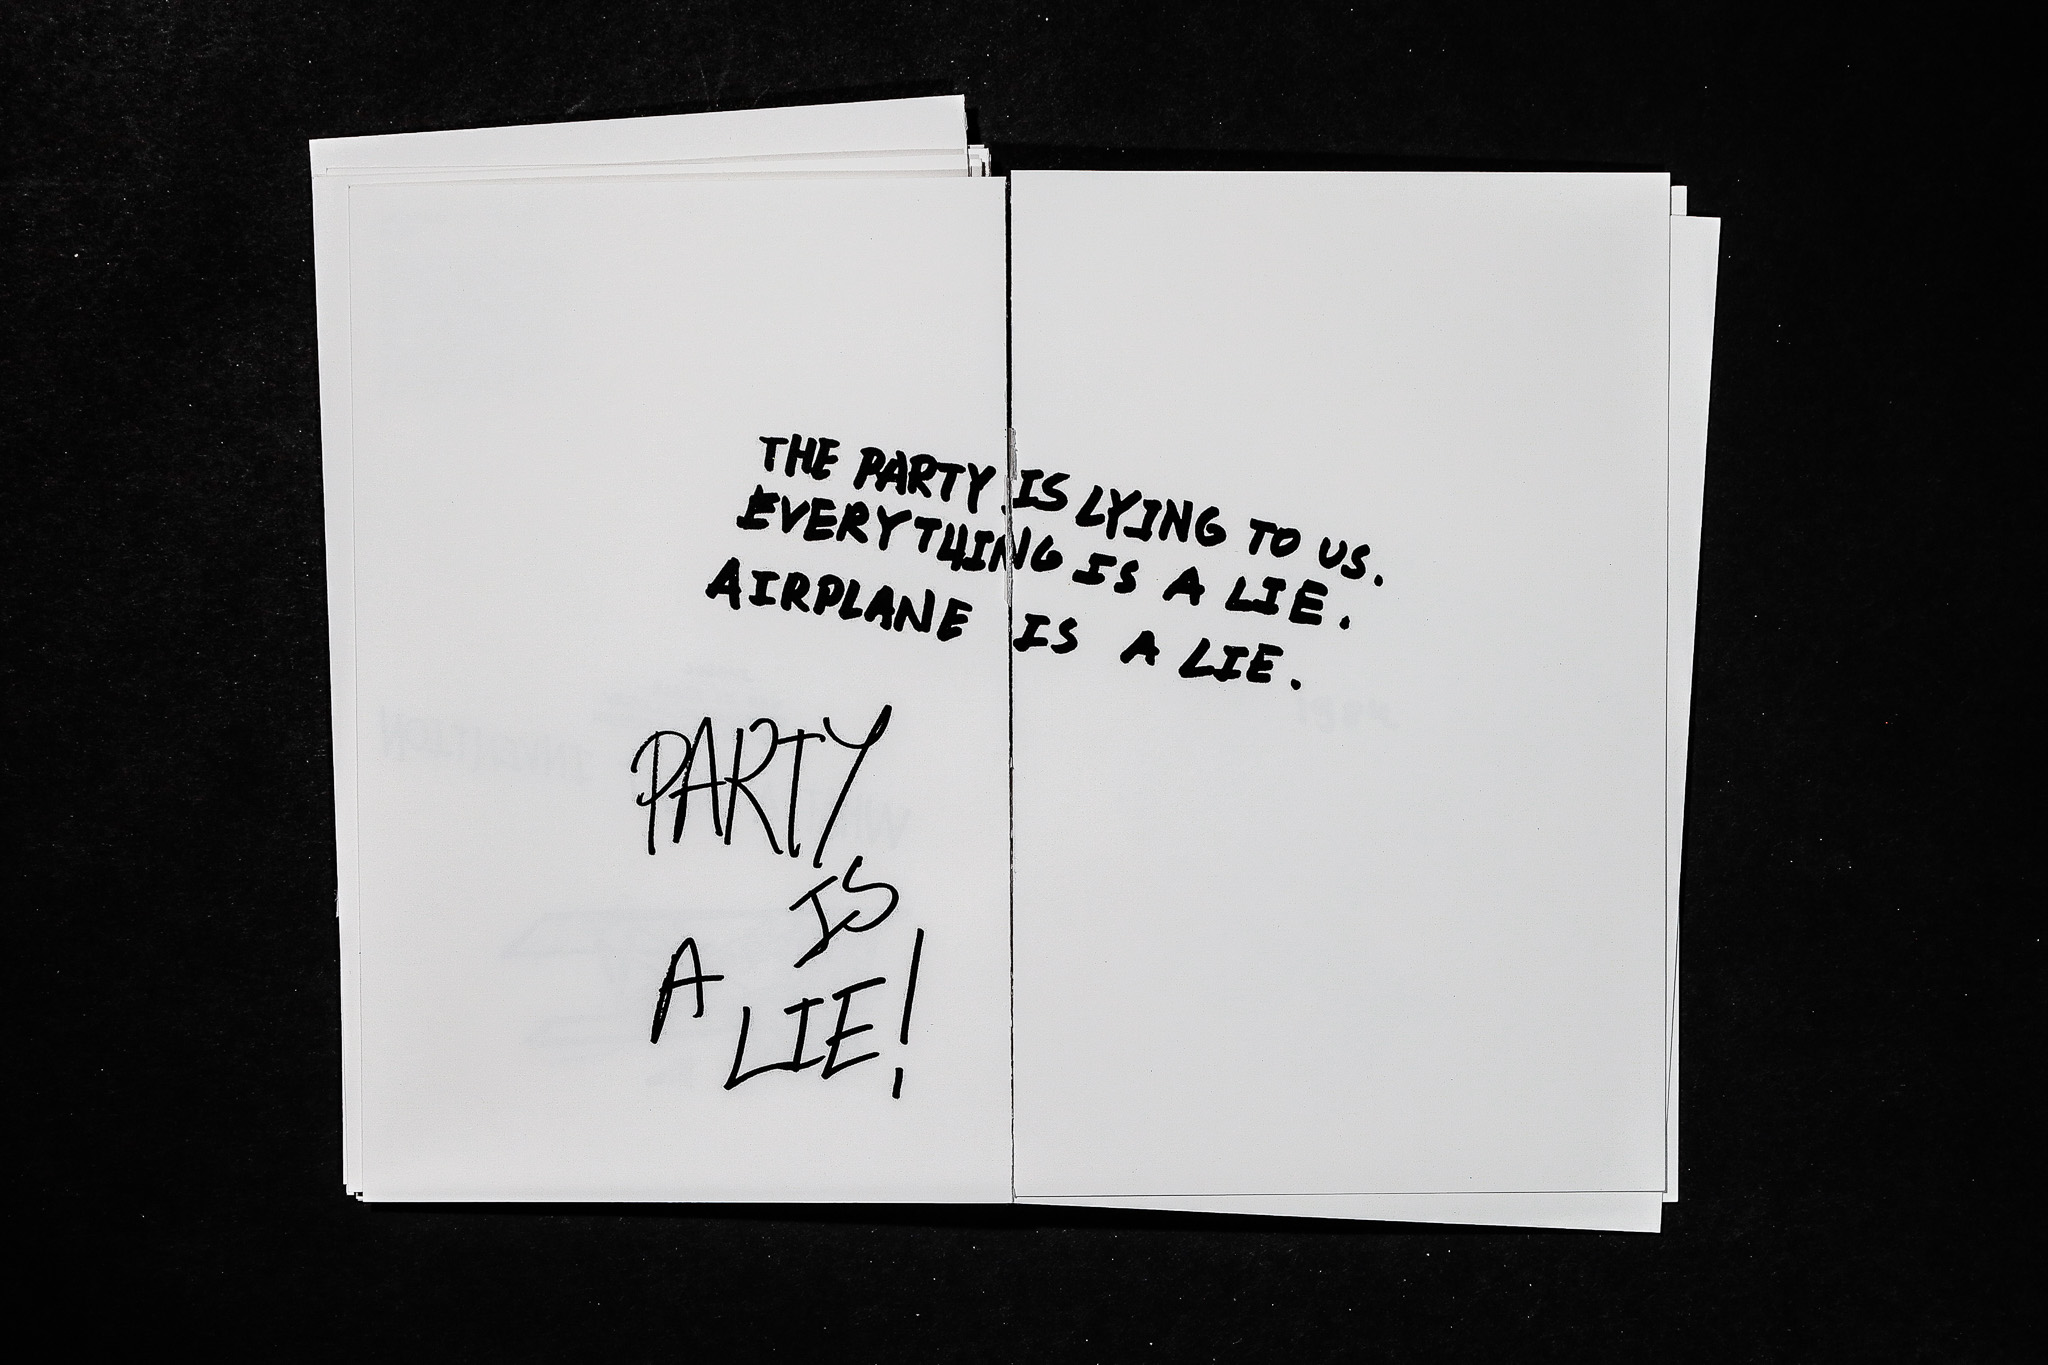 THE PARTY IS LYING TO US.
EVERYTHING IS A LIE.
AIRPLANE IS A LIE.
PARTY
IS
A
LIE!